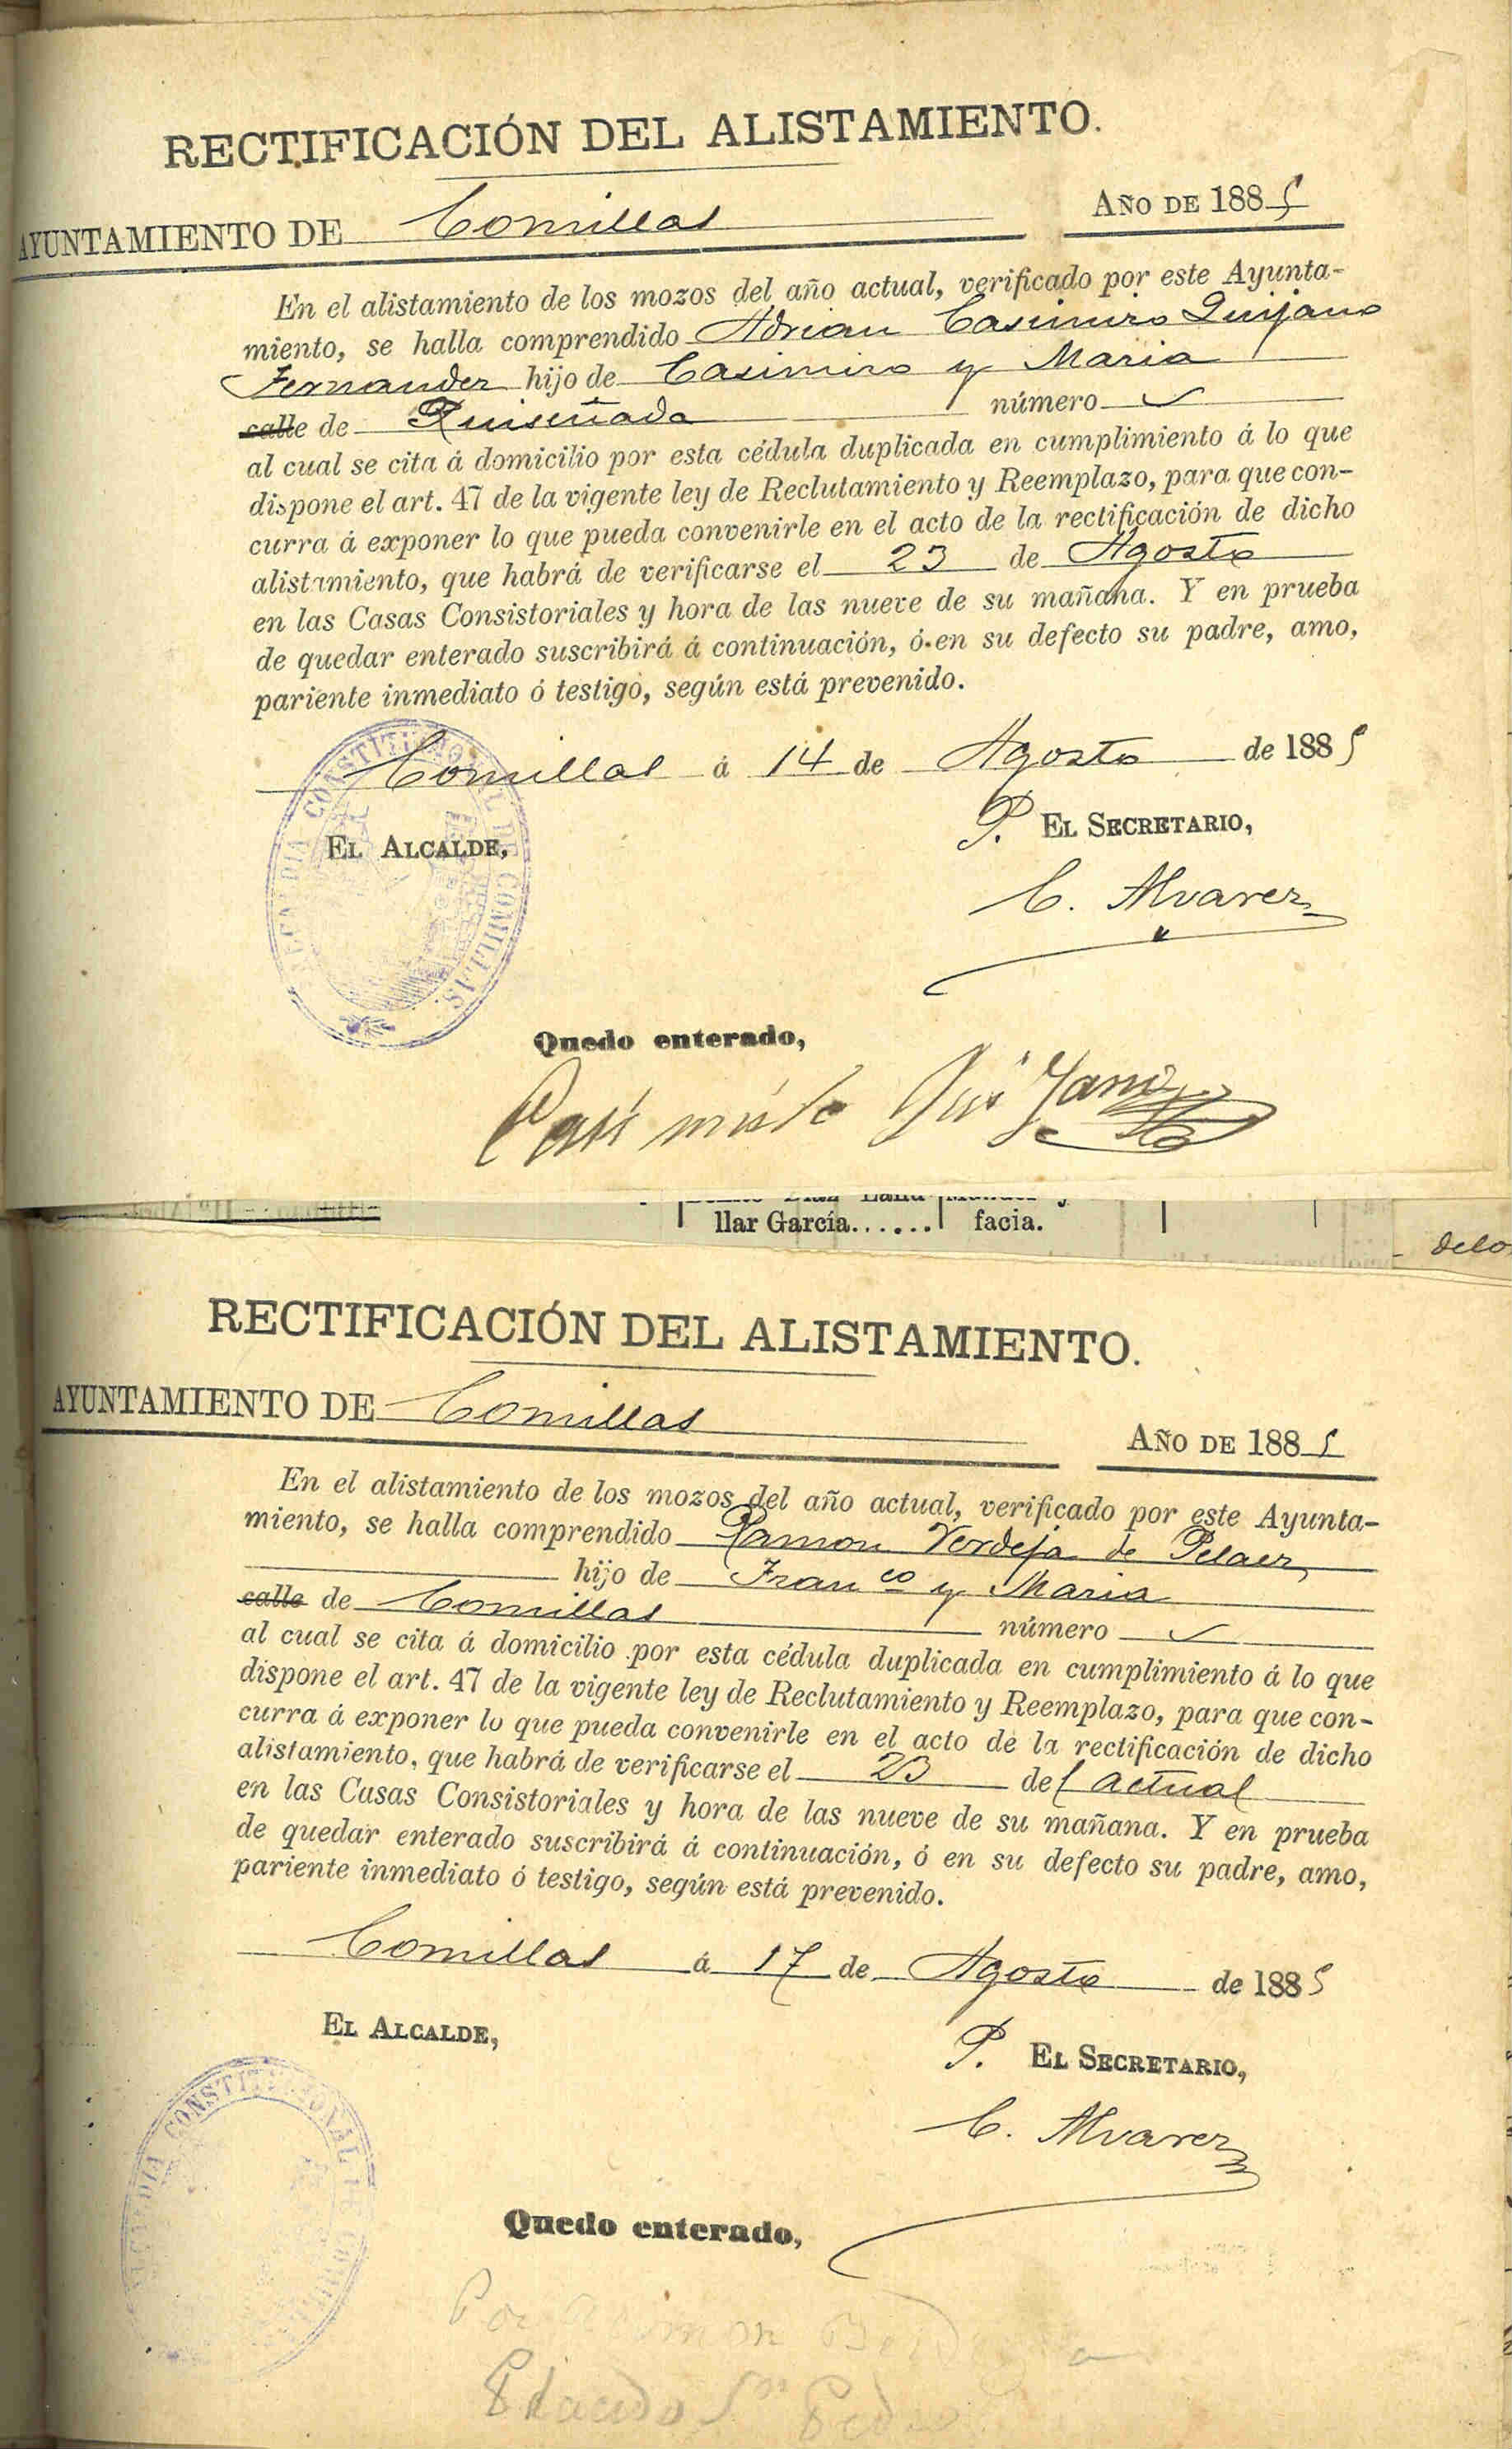 RECTIFICACIÓN DEL ALISTAMIENTO.
AYUNTAMIENTO DE Comillas
AÑO DE 1885
En el alistamiento de los mozos del año actual, verificado por este Ayunta-
miento, se halla comprendido Adrian Casimiro Quijano
Fernandez hijo de Casimiro y Maria
calle de Ruiseñada número
al cual se cita á domicilio por esta cédula duplicada en cumplimiento á lo que
dispone el art. 47 de la vigente ley de Reclutamiento y Reemplazo, para que con-
curra á exponer lo que pueda convenirle en el acto de la rectificación de dicho
alistamiento, que habrá de verificarse el 23 de Agosto
en las Casas Consistoriales y hora de las nueve de su mañana. Y en prueba
de quedar enterado suscribirá á continuación, ó en su defecto su padre, amo,
pariente inmediato ó testigo, según está prevenido.
Comillas á 14 de Agosto de 1885
P. EL SECRETARIO,
EL ALCALDE,
CONSTITUCIONAL DE COMILLAS
C. Alvarez
Quedo enterado,
Casimiro Quijano
llar García...... facia.
delo
RECTIFICACIÓN DEL ALISTAMIENTO.
AYUNTAMIENTO DE Comillas
AÑO DE 1885
En el alistamiento de los mozos del año actual, verificado por este Ayunta-
miento, se halla comprendido Ramon Verdeja de Pelaez
hijo de Franco y Maria
calle de Comillas número
al cual se cita á domicilio por esta cédula duplicada en cumplimiento á lo que
dispone el art. 47 de la vigente ley de Reclutamiento y Reemplazo, para que con-
curra á exponer lo que pueda convenirle en el acto de la rectificación de dicho
alistamiento, que habrá de verificarse el 23 del actual
en las Casas Consistoriales y hora de las nueve de su mañana. Y en prueba
de quedar enterado suscribirá á continuación, ó en su defecto su padre, amo,
pariente inmediato ó testigo, según está prevenido.
Comillas á 17 de Agosto de 1885
EL ALCALDE,
P. EL SECRETARIO,
CONSTITUCIONAL DE
C. Alvarez
Quedo enterado,
Por Ramon
Pedro